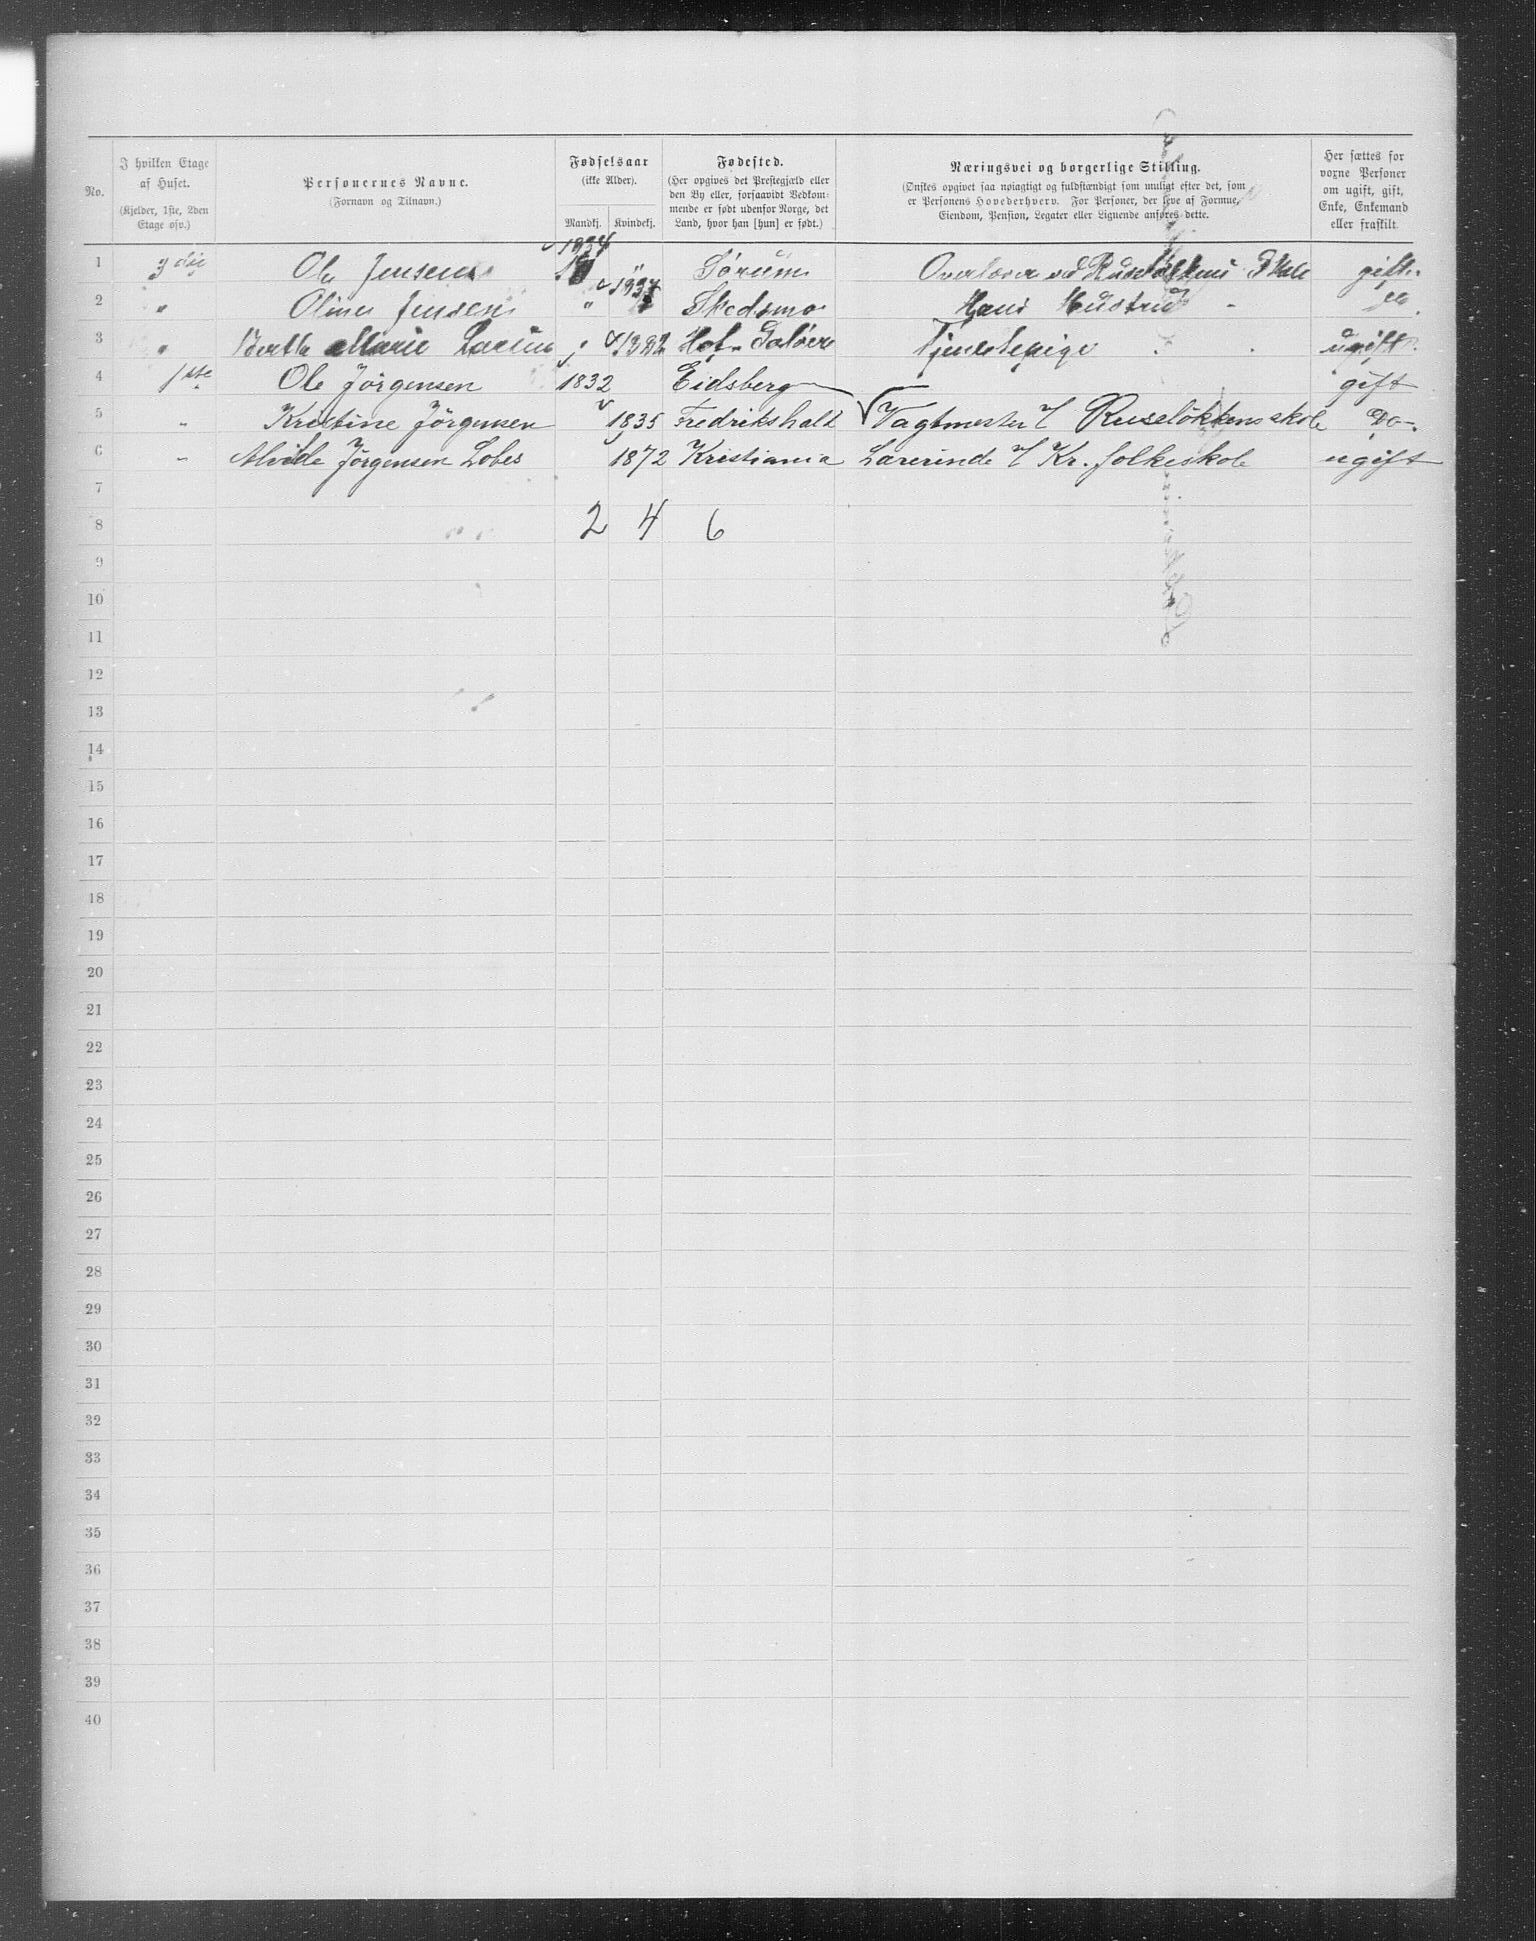 No.
I hvilken Etage af Huset.
(Kjelder, 1ste, 2den Etage osv.)
Personernes Navne.
(Fornavn og Tilnavn.)
Fødselsaar
(ikke Alder).
Mandkj. Kvindekj.
Fødested.
(Her opgives det Prestegjæld eller
den By eller, forsaavidt Vedkom-
mende er født udenfor Norge, det
Land, hvor han [hun] er født.)
Næringsvei og borgerlige Stilling.
(Ønskes opgivet saa nøiagtigt og fuldstændigt som muligt efter det, som
er Personens Hovederhverv. For Personer, der leve af Formue,
Eiendom, Pension, Legater eller Lignende anføres dette.
Her sættes for
voxne Personer
om ugift, gift,
Enke, Enkemand
eller fraskilt.
1 3die Ole Jensen 1834 " Sørum Overlærer ved Ruseløkkens Skole gift
2 " Oline Jensen " 1837 Skedsmo Hans Hustru Do
3 " Berthe Marie " 1882 Hof Soløer Tjenestepige ugift
4 1ste Ole Jörgensen 1832 Eidsberg gift
5 " Kristine Jörgensen 1835 Fredrikshald Vagtmester v/ Ruselökkens skole Do
6 " Alvilde Jörgensen Lobes 1872 Kristiania Lærerinde v/ Kr. folkeskole ugift
7
8 2 4 6
9
10
11
12
13
14
15
16
17
18
19
20
21
22
23
24
25
26
27
28
29
30
31
32
33
34
35
36
37
38
39
40